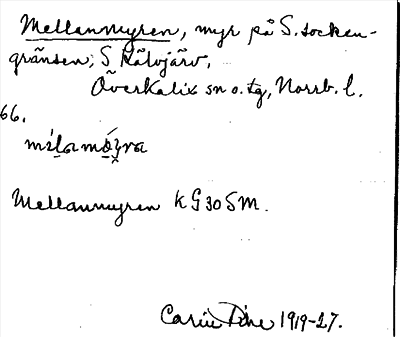 Mellanmyren, myr på S. socken-
gränsen, S Kälvjärv,
Överkalix sn o. tg, Norrb. l.
66.
Mellanmyren KG30SM.
Carin Pihl 1919-27.